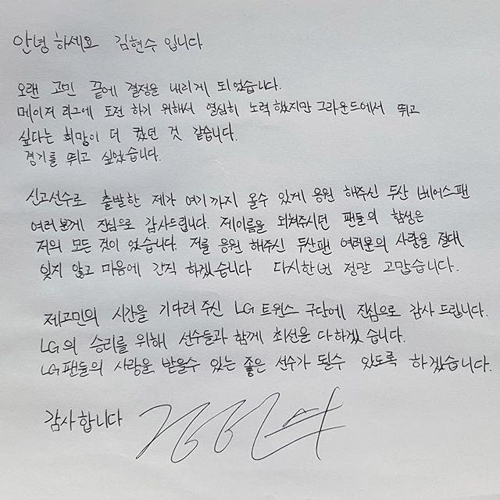 안녕하세요 김현수 입니다
오랜 고민 끝에 결정을 내리게 되었습니다.
메이저 리그에 도전 하기 위해서 열심히 노력했지만 그라운드에서 뛰고
싶다는 희망이 더 컸던 것 같습니다.
경기를 뛰고 싶었습니다.
신고선수로 출발한 제가 여기까지 올수 있게 응원 해주신 두산 베어스팬
여러분께 진심으로 감사드립니다. 제이름을 외쳐주시던 팬들의 함성은
저의 모든 것이 었습니다. 저를 응원 해주신 두산팬 여러분의 사랑을 절대
잊지 않고 마음에 간직 하겠습니다 다시한번 정말 고맙습니다.
제고민의 시간을 기다려 주신 LG 트윈스 구단에 진심으로 감사 드립니다.
LG의 승리를 위해 선수들과 함께 최선을 다하겠 습니다.
LG팬들의 사랑을 받을수 있는 좋은 선수가 될수 있도록 하겠습니다.
감사합니다